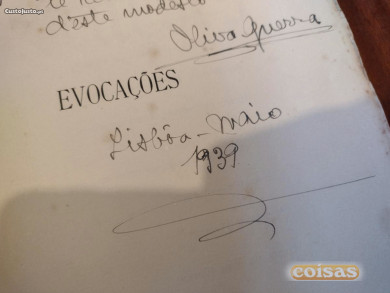 d'êste modesto
Oliva Guerra
EVOCAÇÕES
Lisbôa - Maio
1939
CustoJusto.pt
coisas